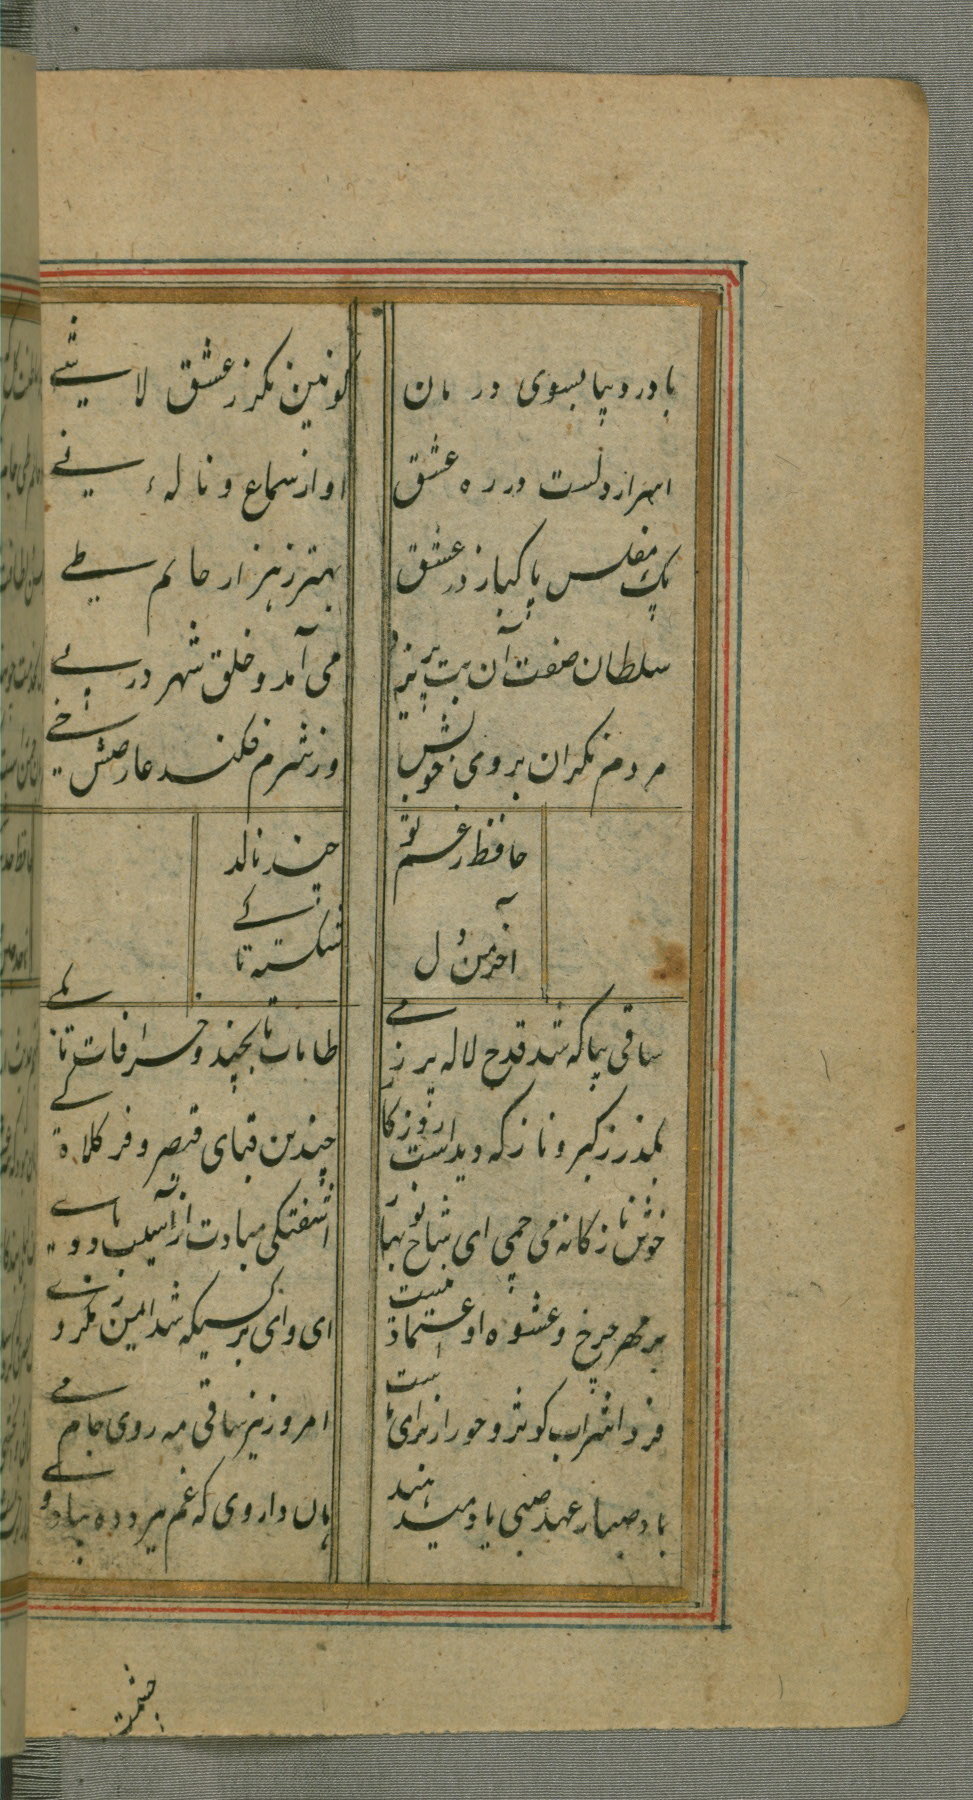 با درد بیا بسوی درمان
کونین نکر ز عشق لا شیے
اسرار دلست در ره عشق
اواز سماع و ناله نیے
یک مفلس پاکباز در عشق
بهتر ز هزار حاتم طیے
سلطان صفت آن بت پریزد
می آمد و خلق شهر در پیے
مردم نکران بروی خوبش
وز شرم فکنده عارضش خیے
حافظ ز غم تو
چند نالد
آخر من دل
شکسته تا کے
ساقی بیا که شد قدح لاله پر ز مے
طامات تا بچند و خرافات تا بکے
بکذر ز کبر و ناز که دیدست روزکار
چندین قبای قیصر و فر کلاه کے
خوش نازکانه می چمی ای شاخ نوبهار
اشفتکی مبادت از آسیب باد دے
بر مهر چرخ و عشوه او اعتماد نیست
ای وای بر کسیکه شد ایمن ز مکر وے
فردا شراب کوثر و حور از برای ماست
امروز نیز ساقی مه روی جام مے
باد صبا ز عهد صبی یاد میدهند
هان داروی که غم ببرد ده
حشمت